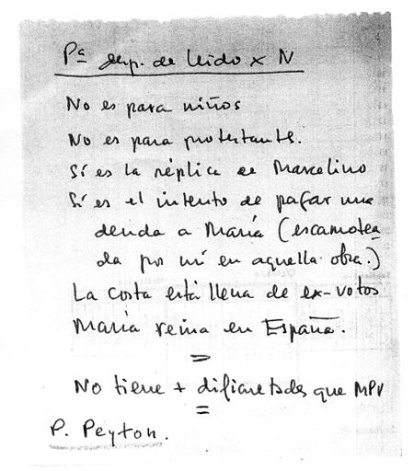 Pª desp. de leido x N
No es para niños
No es para protestante.
Sí es la réplica de Marcelino
Sí es el intento de pagar una
deuda a María (escamotea
da por mí en aquella obra.)
La costa está llena de ex-votos
María reina en España.
=
No tiene + dificultades que MPV
=
P. Peyton.